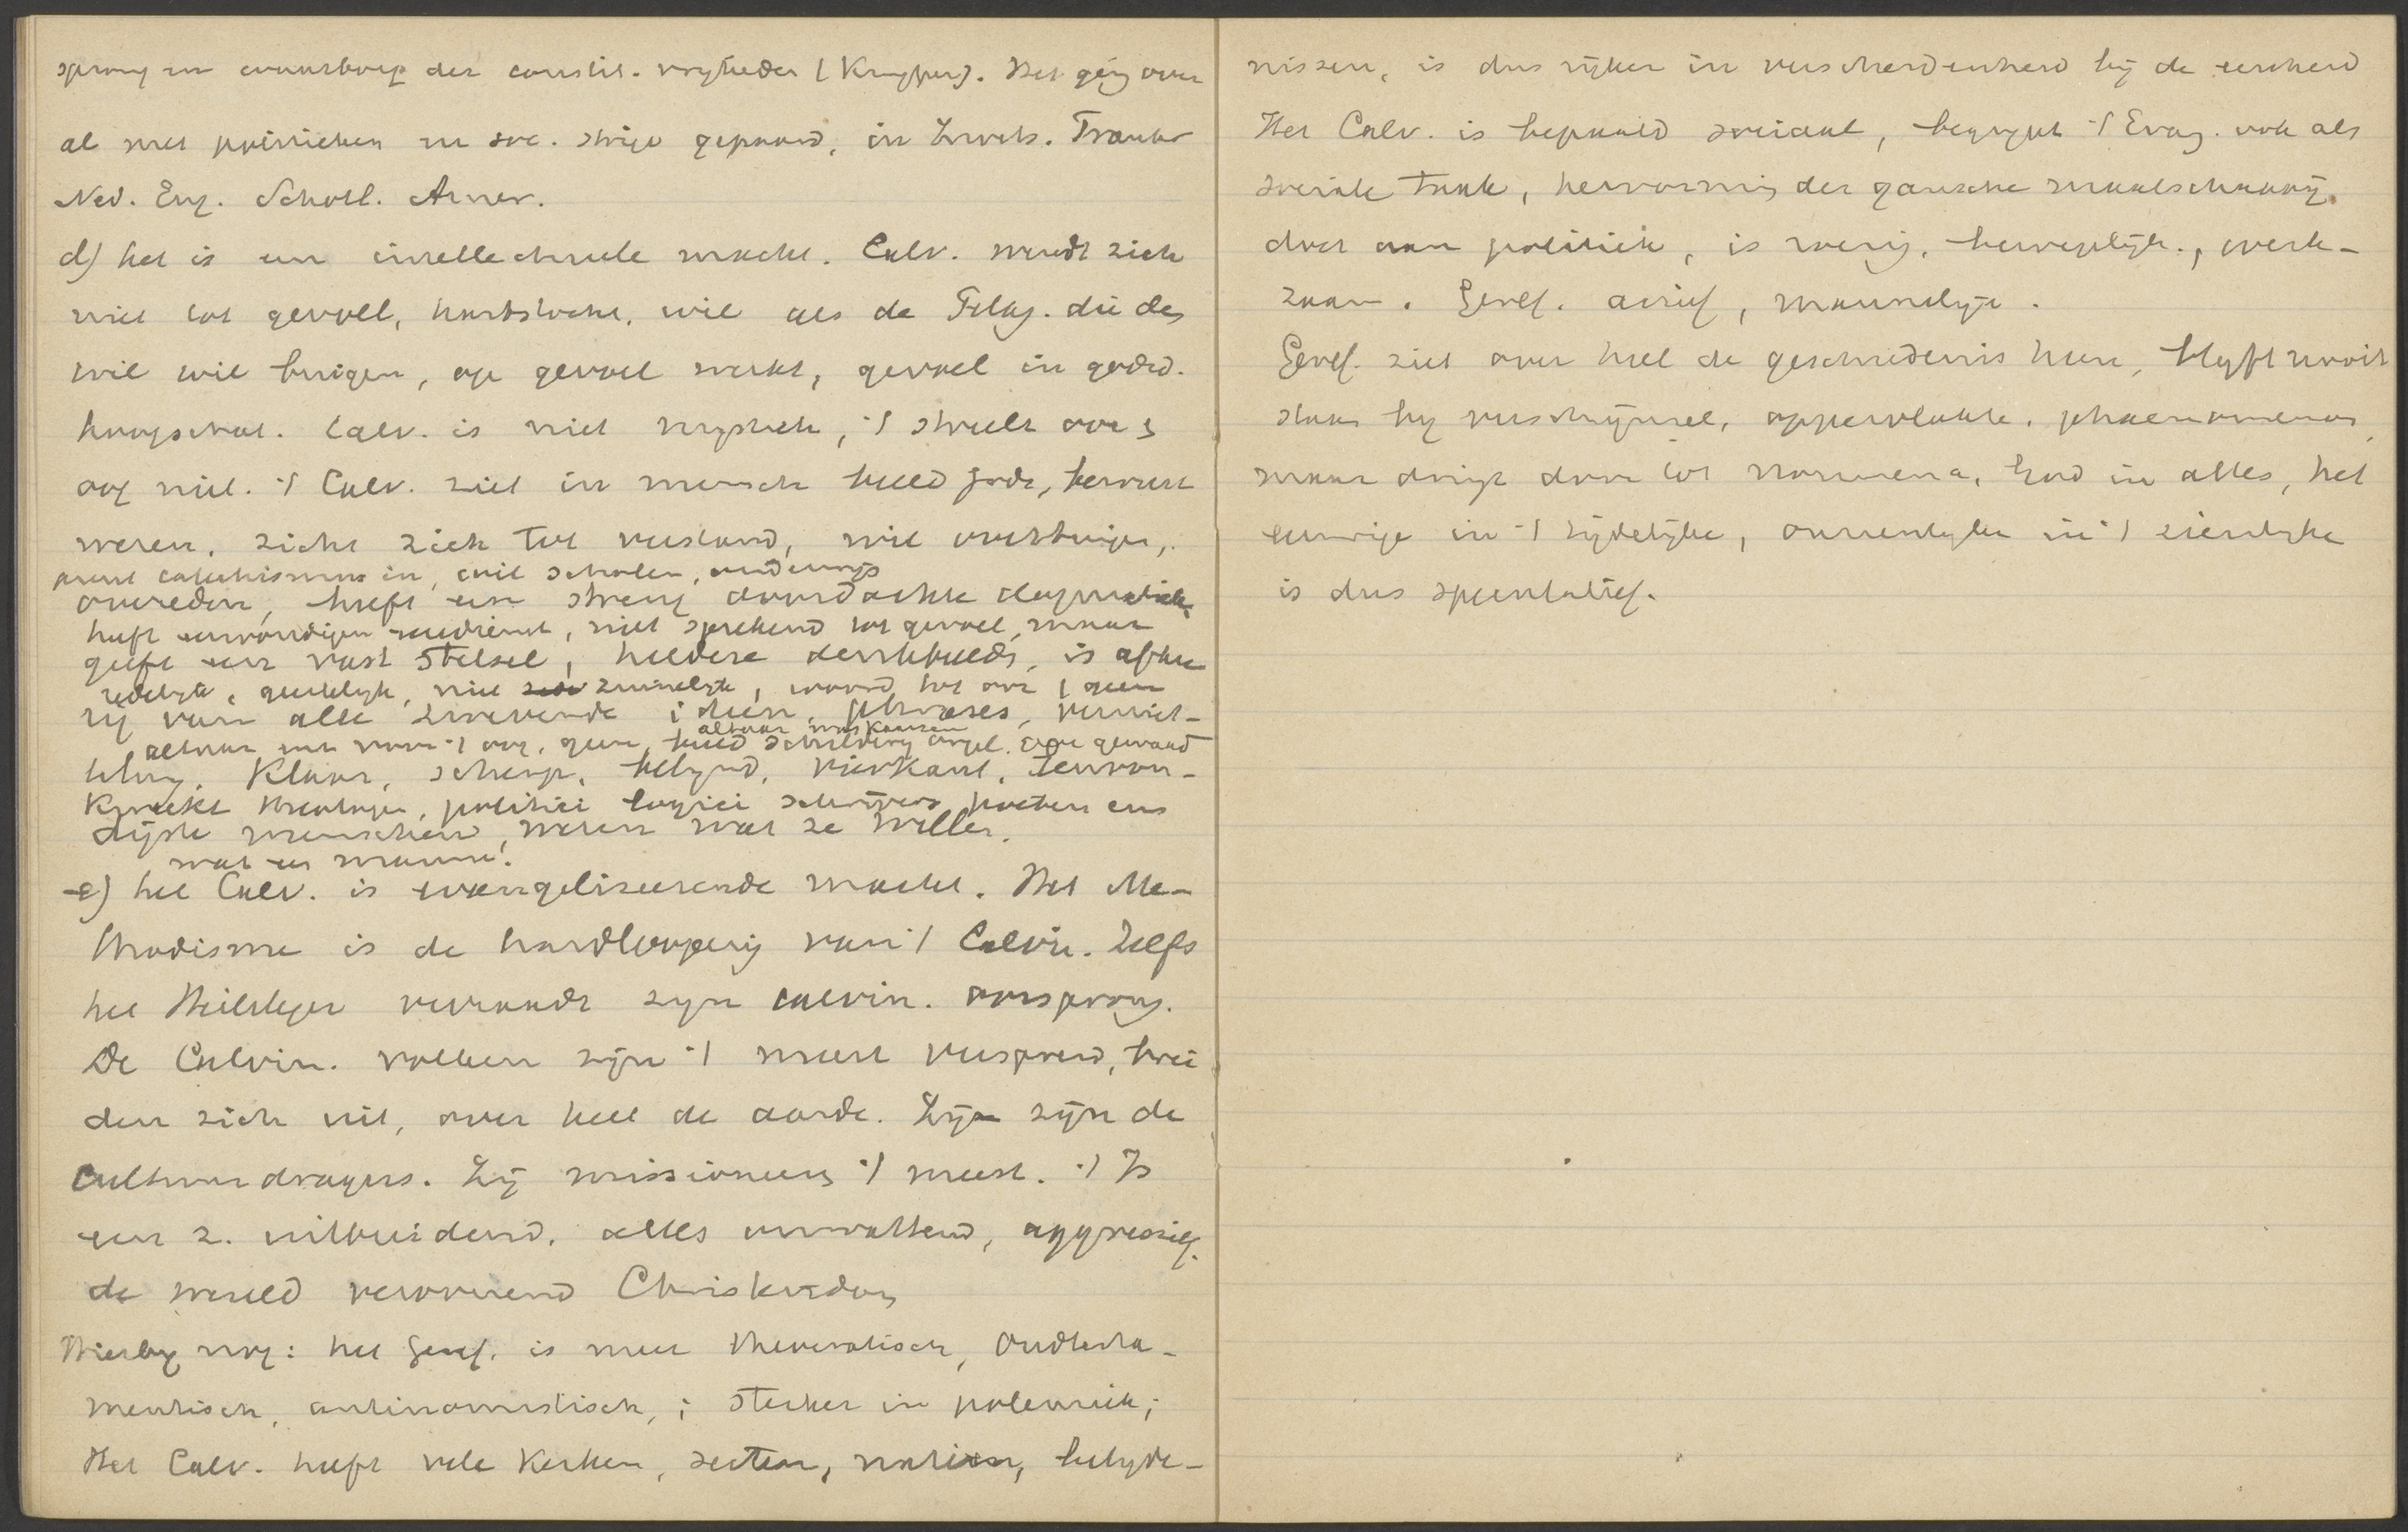 sprong en waarborg der constit. vryheden (Kuyper). Het ging over
al met politieken en soc. strijd gepaard, in Zwits. Frankr
Ned. Eng. Schotl. Amer.
d) het is een intellectueele macht. Calv. wendt zich
niet tot gevoel, hartstocht, wil als de Pelag. die des
wil wil buigen, op gevoel werkt, gevoel in godsd.
hoogschat. Calv. is niet mystiek, 't streelt oor &
oog niet. 't Calv. ziet in mensch beeld Gods, bewust
wezen, richt zich tot verstand, wil overtuigen,
voert catechismus in, wil scholen, onderwijs
overreden, heeft een streng doordachte dogmatiek,
heeft eenvoudigen eeredienst, niet sprekend tot gevoel, maar
geeft een vast stelsel, heldere denkbeelden, is afkee
redelyk, geestelyk, niet zinnelyk, woord tot oor, geen
rig van alle zwevende ideen, phrases, vernist-
altaar waskaarsen
altaar enz voor 't oog, geen beeld schildery orgel. gewaad
teling. Klaar, scherp, belynd, vierkant,
Kweekt theologen, politici logici schrijvers poeten enz
menschen, weten wat ze willen.
wat een mannen!
e) het Calv. is evangeliseerende macht. Het Me-
thodisme is de hardlooperij van 't Calvin. Zelfs
het Heilsleger verraadt zyn calvin. oorsprong.
De Calvin. volken zijn 't meest verspreid, brei
den zich uit, over heel de aarde. Zij zijn de
Cultuurdragers. Zij missioneeren 't meest. 't Is
een z. uitbreidend, alles omvattend, aggressief,
de wereld veroverend Christendom
Hierby nog: het Geref. is meer theocratisch, Oudtesta-
mentisch, antinomistisch,; sterker in polemiek;
Het Calv. heeft vele Kerken, secten, natien, belyde-
nissen, is dus rijker in verscheidenheid bij de eenheid
Het Calv. is bepaald sociaal, begrypt 't Evang. ook als
sociale taak, hervorming der gansche maatschappij,
doet aan politiek, is roerig, bewegelijk, werk-
zaam. Geref. actief, mannelyk.
Geref. ziet over heel de geschiedenis heen, blyft nooit
staan by verschijnsel, oppervlakte, phaenomenon,
maar dringt door tot noumena, God in alles, het
eeuwige in 't tijdelijke, onzienlyke in 't zienlyke
is dus speculatief.